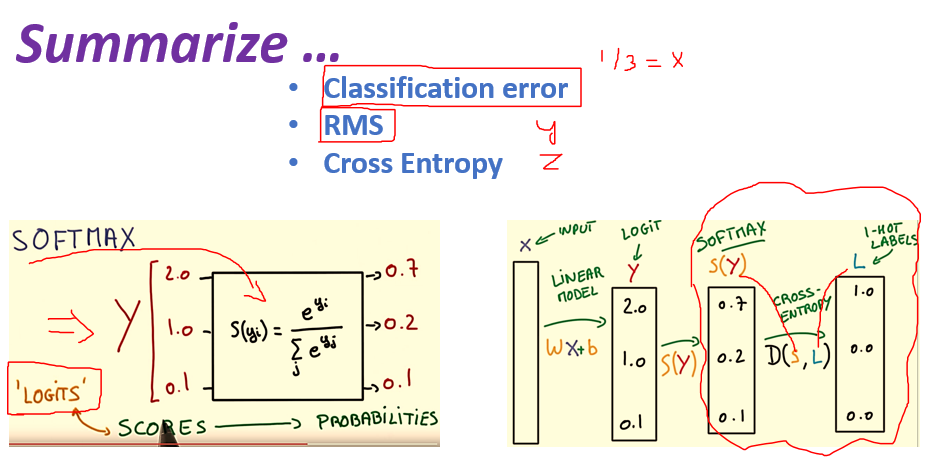 Summarize ...
1/3 = x
• Classification error
• RMS
y
• Cross Entropy
z
SOFTMAX
Y
2.0
1.0
0.1
S(yᵢ) = e^yᵢ / Σⱼ e^yⱼ
→0.7
→0.2
→0.1
'LOGITS'
SCORES → PROBABILITIES
X
INPUT
LINEAR MODEL
WX+b
LOGIT
Y
2.0
1.0
0.1
S(Y)
SOFTMAX
S(Y)
0.7
0.2
0.1
CROSS-
ENTROPY
D(S, L)
1-HOT
LABELS
L
1.0
0.0
0.0